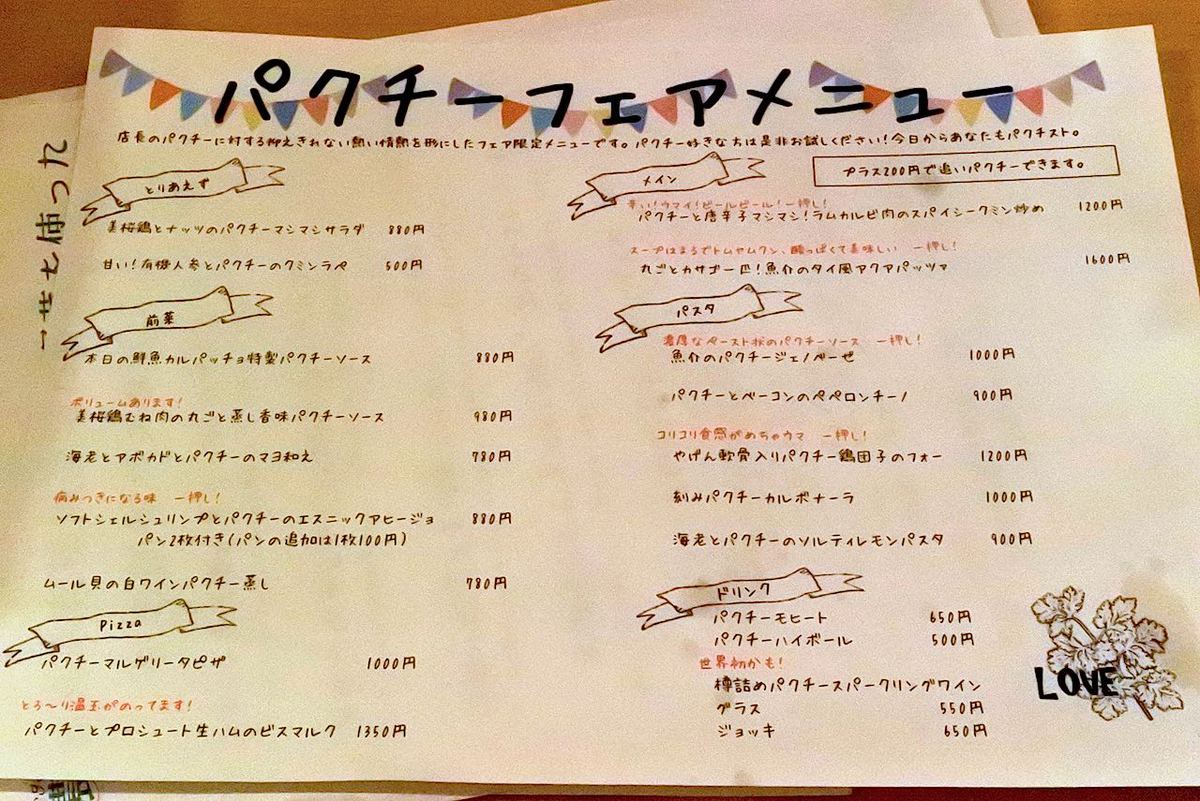 パクチーフェアメニュー
店長のパクチーに対する抑えきれない熱い情熱を形にしたフェア限定メニューです。パクチー好きな方は是非お試しください!今日からあなたもパクチスト。
プラス200円で追いパクチーできます。
とりあえず
美桜鶏とナッツのパクチーマシマシサラダ 880円
甘い!有機人参とパクチーのクミンラペ 500円
前菜
本日の鮮魚カルパッチョ特製パクチーソース 880円
ボリュームあります!
美桜鶏むね肉の丸ごと蒸し香味パクチーソース 980円
海老とアボカドとパクチーのマヨ和え 780円
病みつきになる味 一押し!
ソフトシェルシュリンプとパクチーのエスニックアヒージョ 880円
パン2枚付き(パンの追加は1枚100円)
ムール貝の白ワインパクチー蒸し 780円
Pizza
パクチーマルゲリータピザ 1000円
とろ〜り温玉がのってます!
パクチーとプロシュート生ハムのビスマルク 1350円
メイン
辛い!ウマイ!ビールビール!一押し!
パクチーと唐辛子マシマシ!ラムカルビ肉のスパイシークミン炒め 1200円
スープはまるでトムヤムクン、酸っぱくて美味しい 一押し!
丸ごとカサゴ一匹!魚介のタイ風アクアパッツァ 1600円
パスタ
濃厚なペースト状のパクチーソース 一押し!
魚介のパクチージェノベーゼ 1000円
パクチーとベーコンのペペロンチーノ 900円
コリコリ食感がめちゃウマ 一押し!
やげん軟骨入りパクチー鶏団子のフォー 1200円
刻みパクチーカルボナーラ 1000円
海老とパクチーのソルティレモンパスタ 900円
ドリンク
パクチーモヒート 650円
パクチーハイボール 500円
世界初かも!
樽詰めパクチースパークリングワイン
グラス 550円
ジョッキ 650円
LOVE